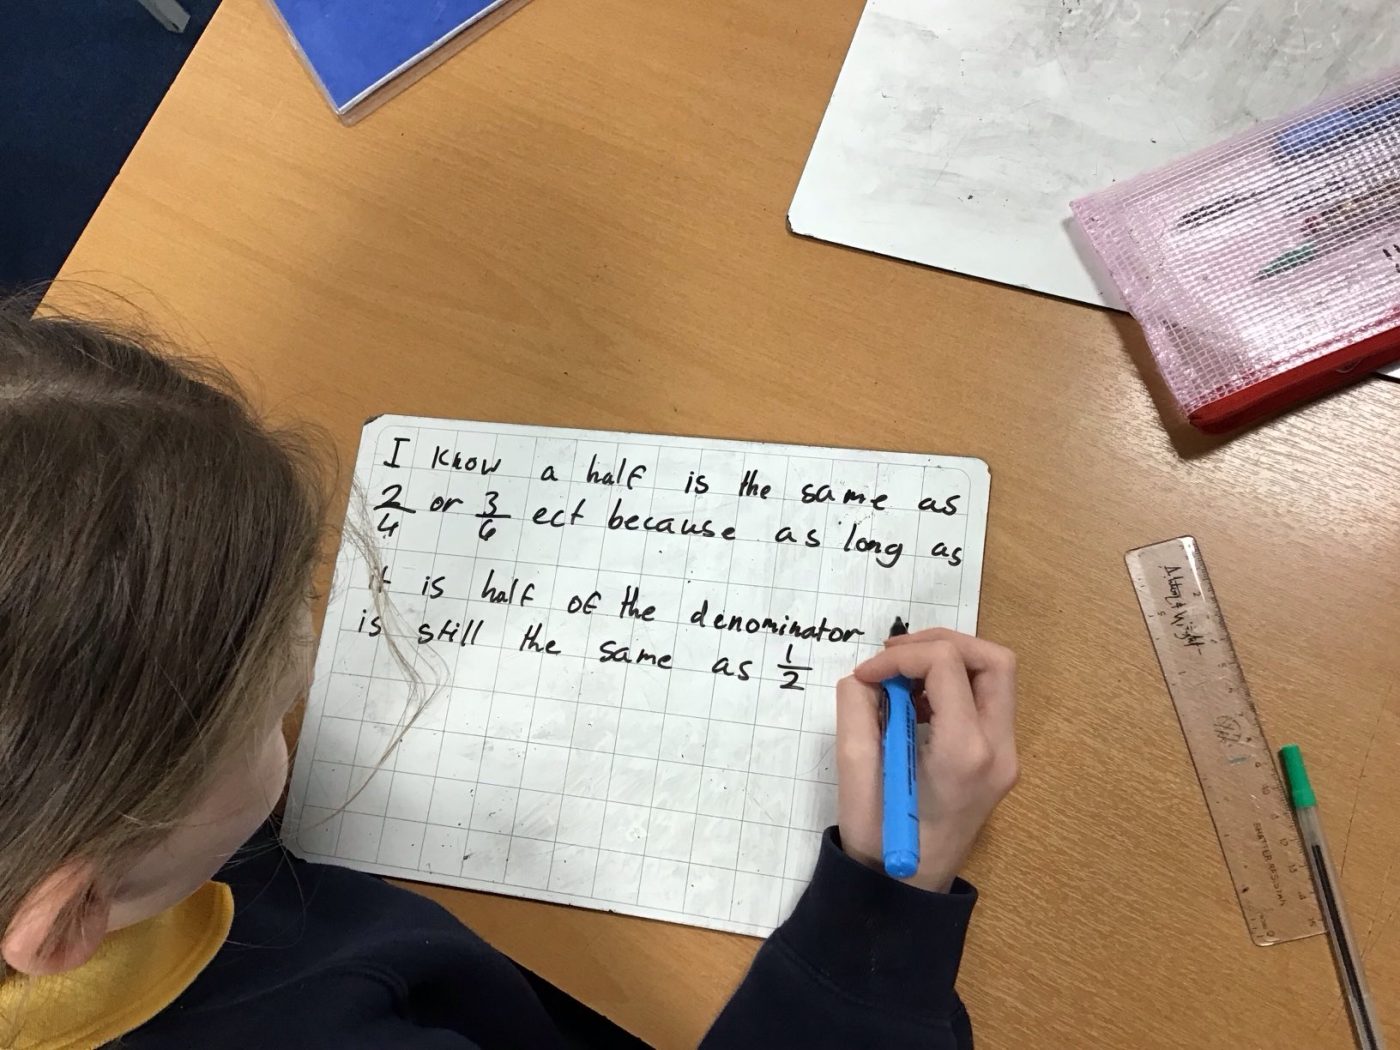 I know a half is the same as
2/4 or 3/6 ect because as long as
it is half of the denominator it
is still the same as 1/2
SHATTER RESISTANT